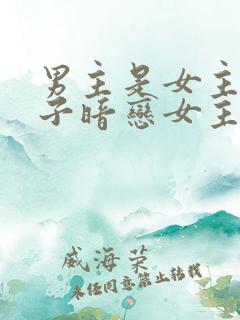 男主是女主
子暗戀女主
威海荣
未经同意禁止转载